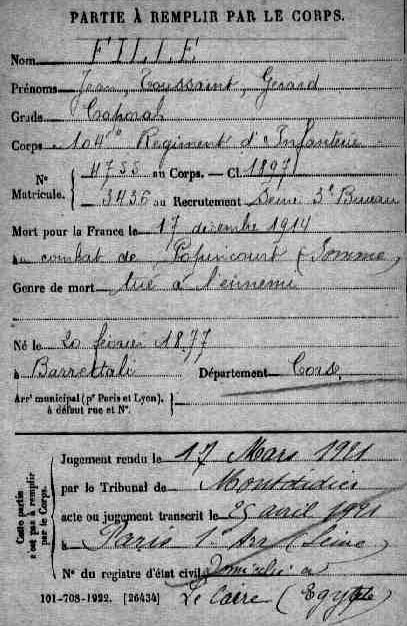 PARTIE À REMPLIR PAR LE CORPS.
Nom FILLE
Prénoms Jean Toussaint, Gérard
Grade Caporal
Corps 104e Régiment d'Infanterie
N° Matricule. { 4755 au Corps. — Cl. 1897
3436 au Recrutement Seine 3e Bureau
Mort pour la France le 17 décembre 1914
au combat de Popincourt (Somme)
Genre de mort tué à l'ennemi
Né le 20 février 1877
à Barrettali Département Corse
Arrt municipal (pr Paris et Lyon), à défaut rue et N°.
Cette partie n'est pas à remplir par le Corps.
Jugement rendu le 17 Mars 1921
par le Tribunal de Montdidier
acte ou jugement transcrit le 25 avril 1921
à Paris 1er Arr (Seine)
N° du registre d'état civil Domicilié à
Le Caire (Egypte)
101-708-1922. [26434]